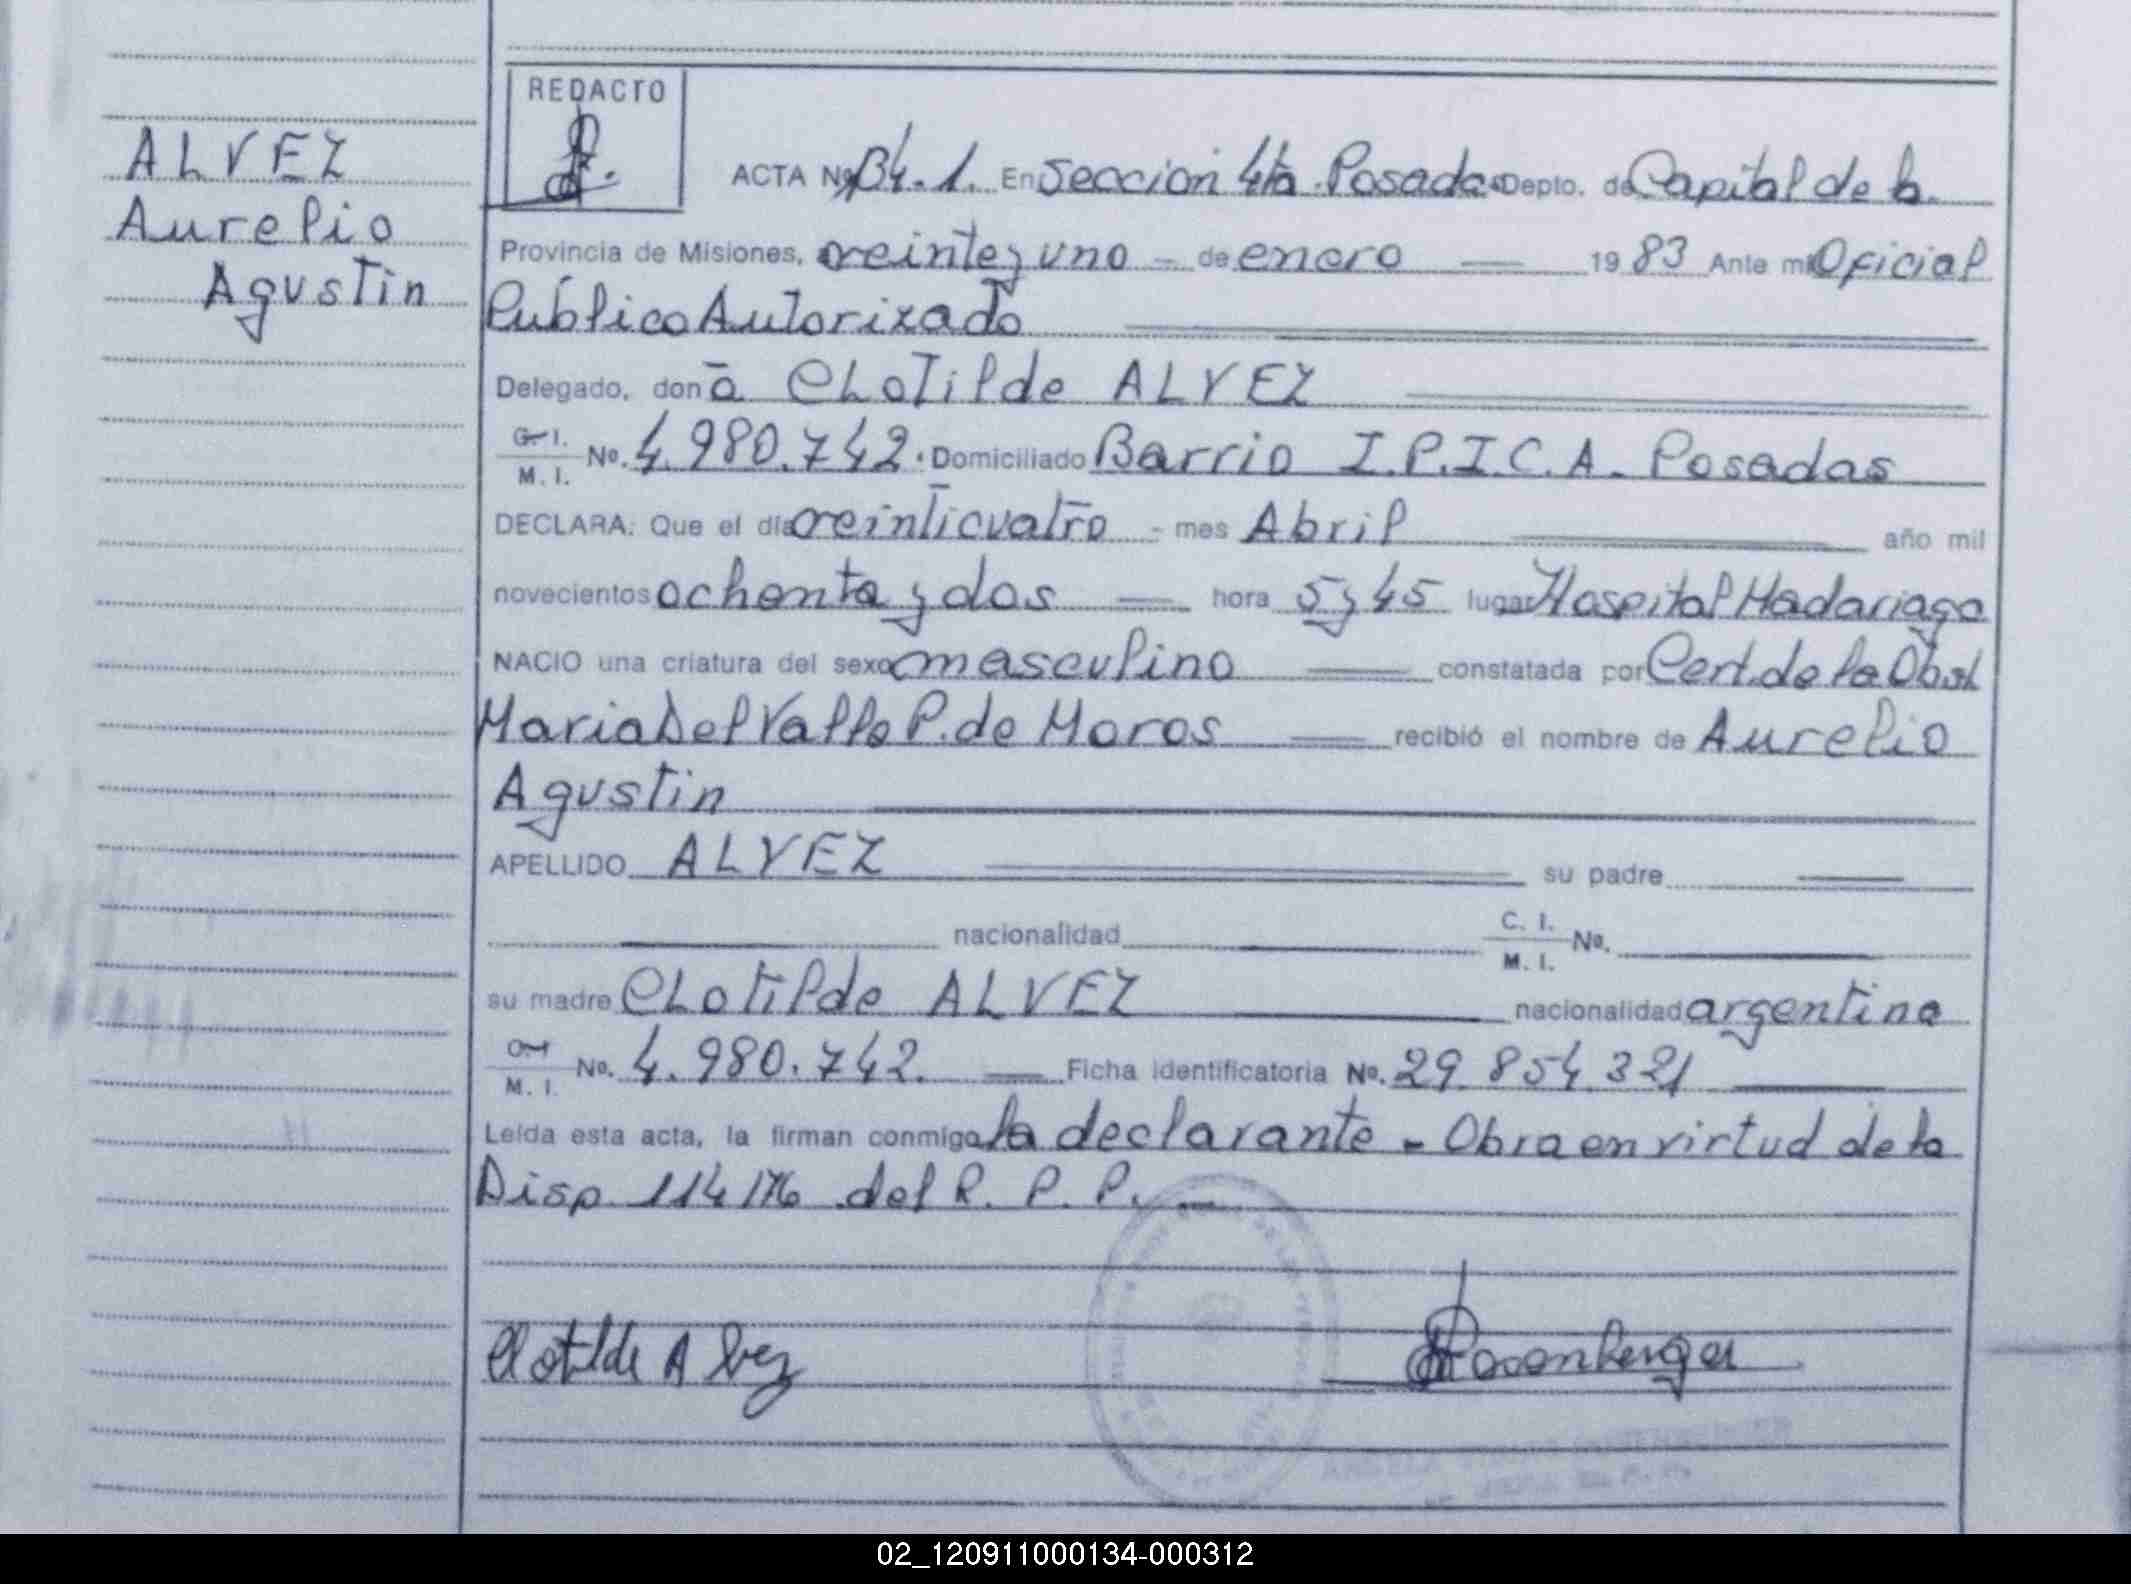 REDACTO
ALVEZ
Aurelio
Agustin
ACTA Nº 84.1. En Seccion 4ta Posadas Depto. de Capital de la
Provincia de Misiones, veinte y uno — de enero — 1983 Ante mi Oficial
Publico Autorizado
Delegado, donā CLoTilde ALVEZ
C. I. / M. I. No. 4.980.742. Domiciliado Barrio I.P.I.C.A. Posadas
DECLARA: Que el día veinticuatro - mes Abril año mil
novecientos ochenta y dos — hora 5 y 45 lugar Hospital Madariaga
NACIO una criatura del sexo masculino — constatada por Cert. de la Obst
Maria Del Valle P. de Moros — recibió el nombre de Aurelio
Agustin
APELLIDO ALVEZ su padre —
— nacionalidad — C. I. / M. I. No. —
su madre CLotilde ALVEZ — nacionalidad argentina
C. I. / M. I. No. 4.980.742. — Ficha identificatoria No. 29.854.321 —
Leída esta acta, la firman conmigo la declarante - Obra en virtud de la
Disp. 114/76 del R. P. P. —
Clotilde Alvez
Rosenberger
02_120911000134-000312